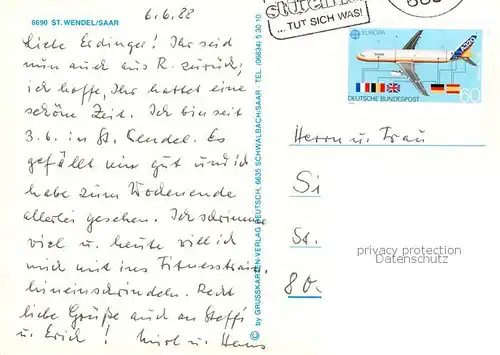 6690 ST. WENDEL/SAAR
6.6.88
Liebe Erdinger! Ihr seid
nun auch aus R. zurück,
ich hoffe, Ihr hattet eine
schöne Zeit. Ich bin seit
3.6. in St. Wendel. Es
gefällt mir gut und ich
habe zum Wochenende
allerlei gesehen. Ich schwimme
viel u. heute will ich
mich mit ins Fitnesstrain.
hineinschwindeln. Recht
liebe Grüße auch an Steffi
u. Erich! u. Hans
© by GRUSSKARTEN-VERLAG DEUTSCH, 6635 SCHWALBACH/SAAR - TEL. (06834) 5 30 10
... TUT SICH WAS!
EUROPA
DEUTSCHE BUNDESPOST
60
Herrn u. Frau
Si
St.
80.
privacy protection
Datenschutz